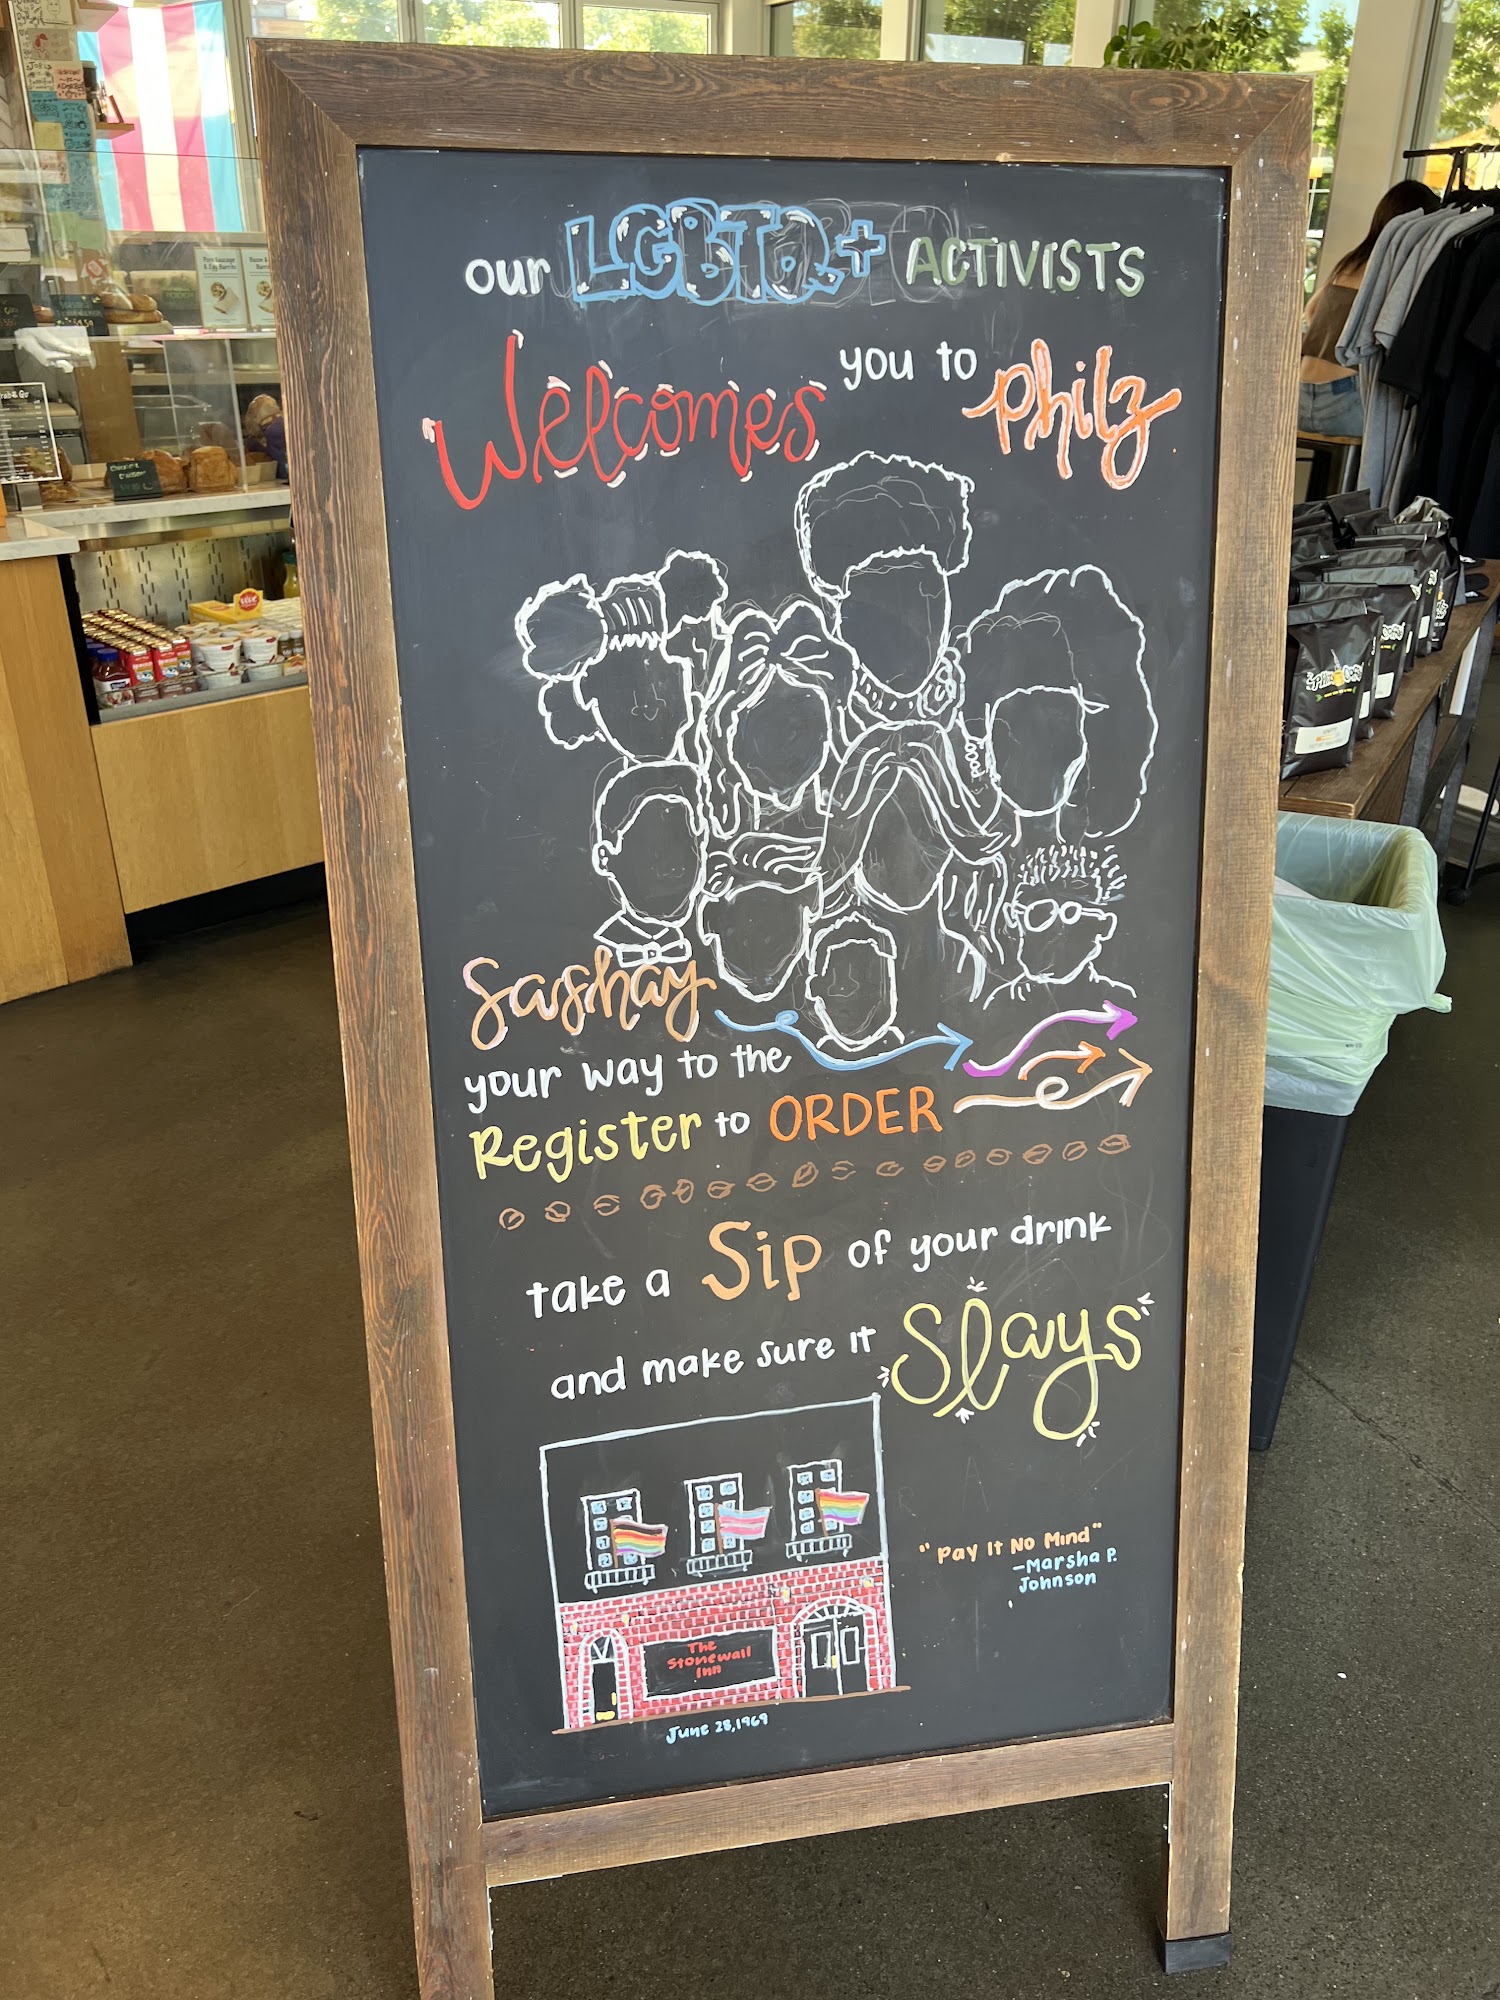 our LGBTQ+ ACTIVISTS
Welcomes you to Philz
Sashay
your way to the
Register to ORDER
take a Sip of your drink
and make sure it Slays
"Pay It No Mind"
-Marsha P.
Johnson
The
Stonewall
Inn
June 28, 1969